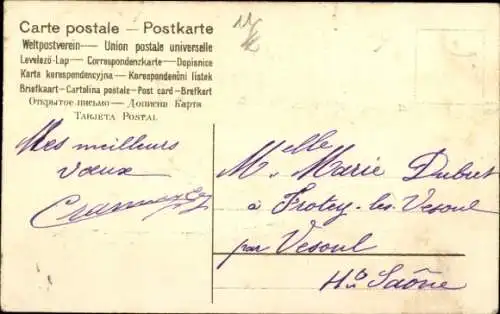 Carte postale — Postkarte
Weltpostverein — Union postale universelle
Levelező-Lap — Correspondenzkarte — Dopisnice
Karta korespondencyjna — Korespondenční lístek
Briefkaart — Cartolina postale — Post card — Brefkort
Открытое письмо — Дописна Карта
Tarjeta Postal
Mes meilleurs
vœux
Mlle Marie Dubut
à Frotey-les-Vesoul
par Vesoul
Hte Saône